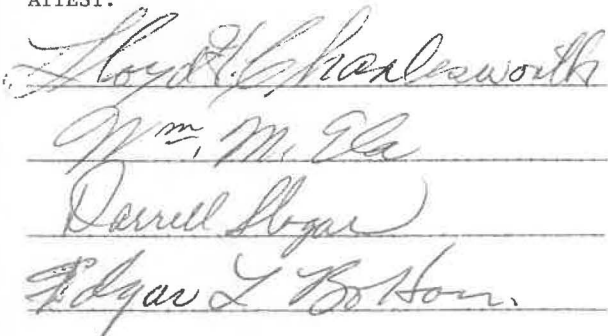 ATTEST:
Lloyd H. Charlesworth
Wm. M. Ela
Darrell
Edgar L Bottom.